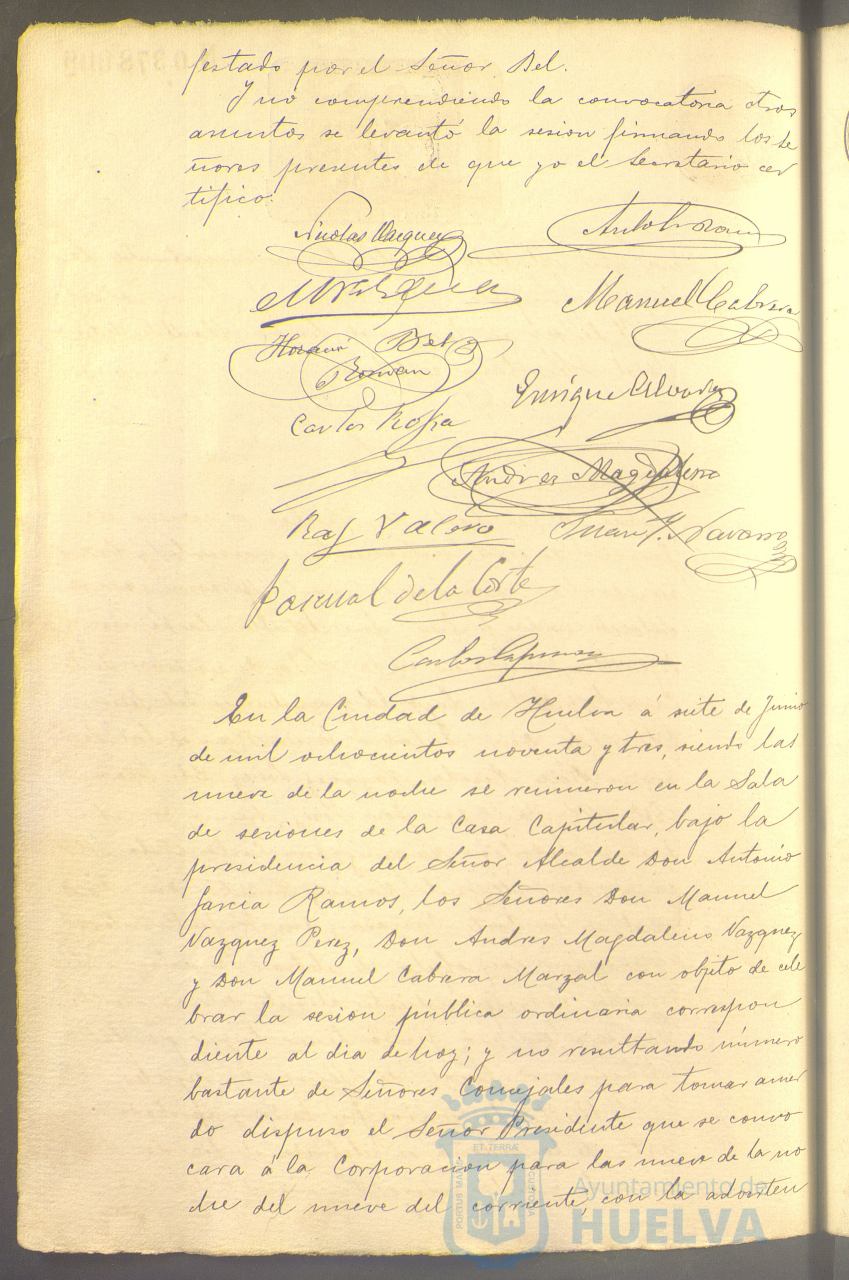 festado por el Señor Bel.
Y no comprendiendo la convocatoria otros
asuntos se levantó la sesion firmando los Se
ñores presentes de que yo el Secretario cer
tifico.
Nicolas Vazquez
Manuel Cabrera
Horacio Bel
Roman
Enrique Alvarez
Carlos
Andres Magdaleno
Raf Valero
Juan Y. Navarro
Pascual de la Corte
Carlos
En la Ciudad de Huelva á siete de Junio
de mil ochocientos noventa y tres, siendo las
nueve de la noche se reunieron en la Sala
de sesiones de la Casa Capitular, bajo la
presidencia del Señor Alcalde Don Antonio
Garcia Ramos, los Señores Don Manuel
Vazquez Perez, Don Andres Magdaleno Vazquez
y Don Manuel Cabrera Marzal con objeto de cele
brar la sesion pública ordinaria correspon
diente al dia de hoy; y no resultando número
bastante de Señores Concejales para tomar acuer
do dispuso el Señor Presidente que se convo
cara á la Corporacion para las nueve de la no
che del nueve del corriente, con la adverten
ET TERRÆ
PORTUS MARIS
CUSTODIA
Ayuntamiento de
HUELVA